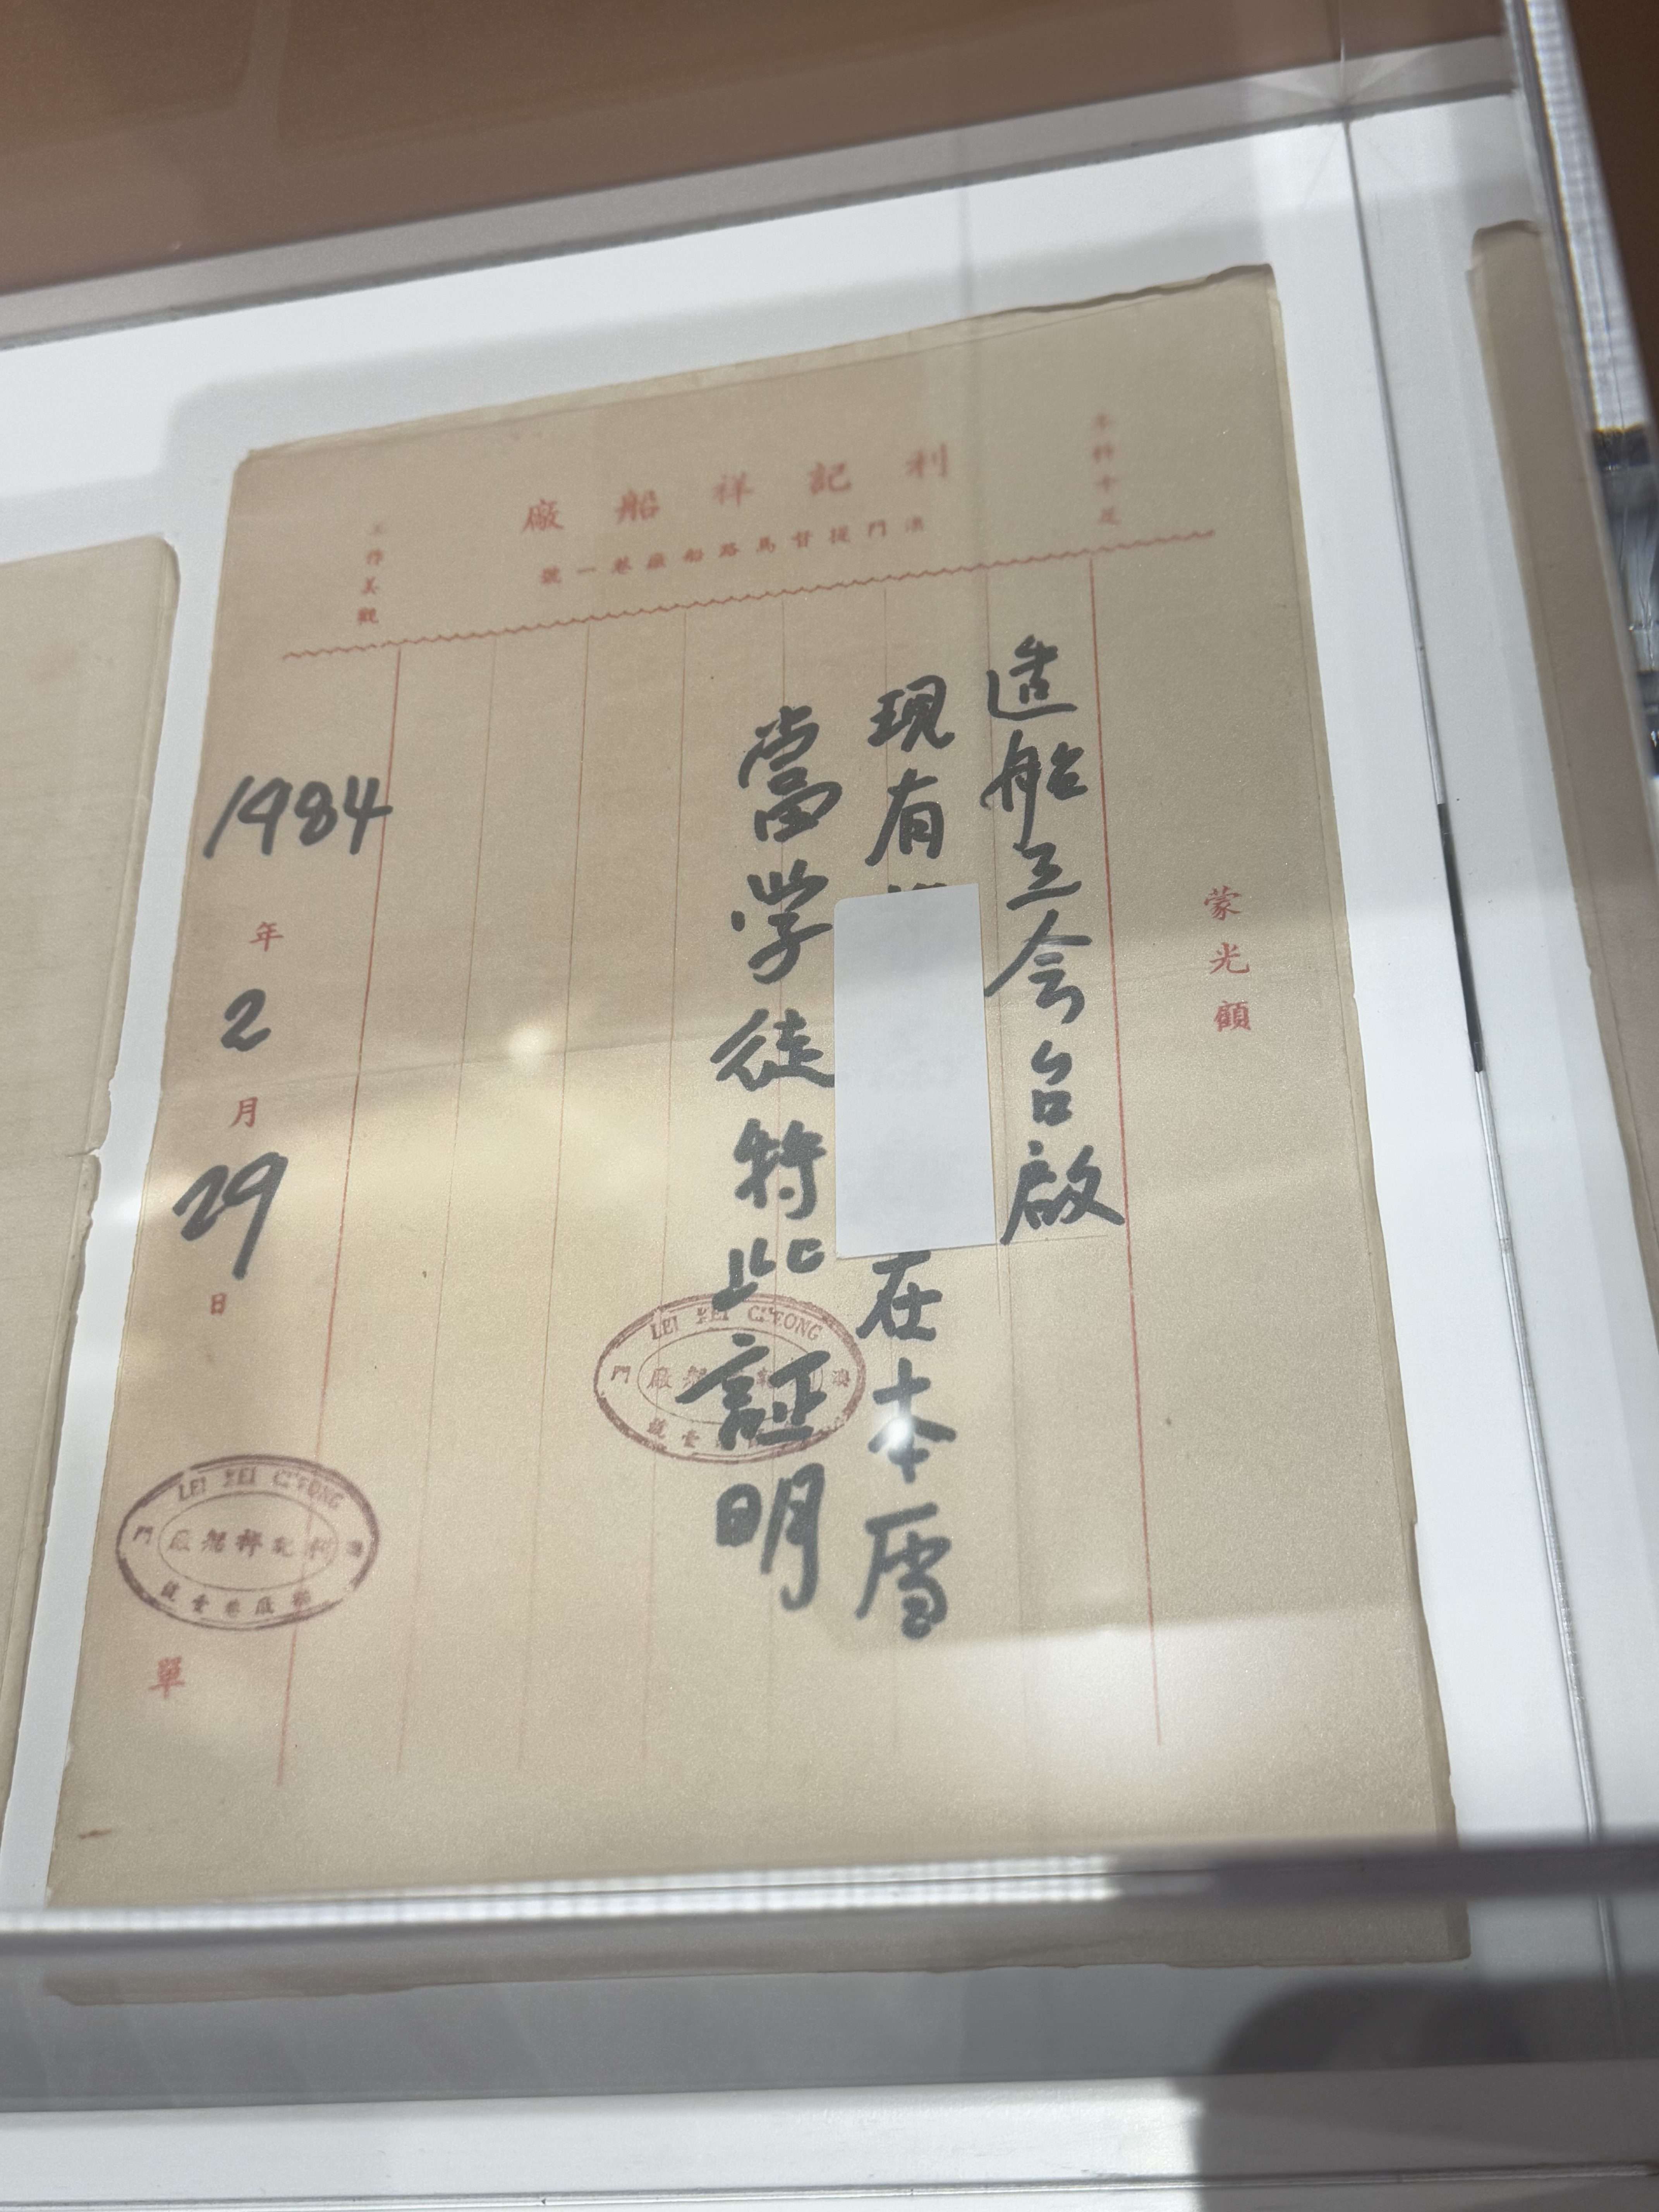 利記祥船廠
澳門提督馬路船廠巷一號
工作美觀
蒙光顧
造船工会台啟
現有
在本厝
當学徒特此証明
1984年2月29日
單
LEI KEI CHEONG
澳門
利記祥船廠
船廠巷壹號
LEI KEI CHEONG
澳門
船廠
壹號